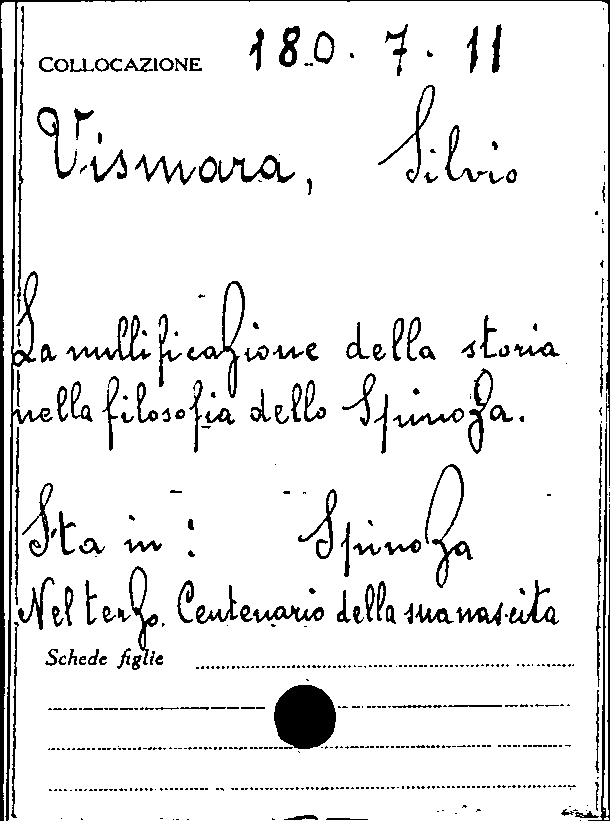 COLLOCAZIONE 180.7.11
Vismara, Silvio
La nullificazione della storia
nella filosofia dello Spinoza.
Sta in: Spinoza
Nel terzo Centenario della sua nascita
Schede figlie